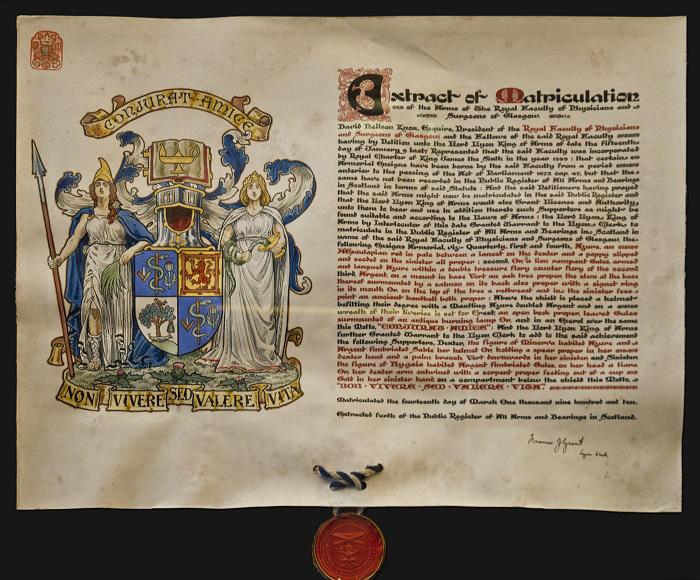 CONJURAT AMICE
NON VIVERE SED VALERE VITA
Extract of Matriculation
of the Arms of The Royal Faculty of Physicians and
Surgeons of Glasgow.
David Neilson Knox, Esquire, President of the Royal Faculty of Physicians
and Surgeons of Glasgow, and the Fellows of the said Royal Faculty
having by Petition unto the Lord Lyon King of Arms of date the fifteenth
day of January last Represented that the said Faculty was incorporated
by Royal Charter of King James the Sixth in the year 1599: that certain
Armorial Ensigns have been borne by the said Faculty from a period
anterior to the passing of the Act of Parliament 1672 cap. 47, but that the
same have not been recorded in the Public Register of All Arms and Bearings
in Scotland in terms of said Statute: And the said Petitioners having prayed
that the said Arms might now be matriculated in the said Public Register and
that the Lord Lyon King of Arms would also Grant License and Authority
unto them to bear and use in addition thereto such Supporters as might be
found suitable and according to the Laws of Arms: the Lord Lyon King of
Arms by Interlocutor of this date Granted Warrant to the Lyon Clerk to
matriculate in the Public Register of All Arms and Bearings in Scotland in
name of the said Royal Faculty of Physicians and Surgeons of Glasgow the
following Ensigns Armorial, viz: Quarterly, first and fourth, Azure, an
Æsculapian rod in pale between a lancet on the dexter and a poppy slipped
and seeded on the sinister all proper: second, Or a lion rampant Gules, armed
and langued Azure within a double tressure flory counter flory of the second
third, Argent on a mount in base Vert an oak tree proper, the stem at the base
thereof surmounted by a salmon on its back also proper with a signet ring
in its mouth Or, on the top of the tree a redbreast and in the sinister fess
point an ancient handbell both proper: Above the shield is placed a helmet
befitting their degree with a Mantling Azure doubled Argent and on a
wreath of their liveries is set for Crest, an open book proper, leaved Gules
surmounted of an antique burning lamp Or, and in an Escrol over the same
this Motto, "CONJURAT AMICE": And the Lord Lyon King of Arms
further Granted Warrant to the Lyon Clerk to add to the said achievement
the following Supporters, Dexter, the figure of Minerva habited Azure and
Argent fimbriated Sable her helmet Or holding a spear proper in her
dexter hand and a palm branch Vert downwards in her sinister, and Sinister,
the figure of Hygeia habited Argent fimbriated Gules, on her head a tiara
Or, on her dexter arm entwined with a serpent proper feeding out of a cup
Gold in her sinister hand on a compartment below the shield this Motto,
"NON · VIVERE · SED · VALERE · VITA."
Matriculated the fourteenth day of March One thousand nine hundred and ten.
Extracted furth of the Public Register of All Arms and Bearings in Scotland.
Francis J Grant
Lyon Clerk